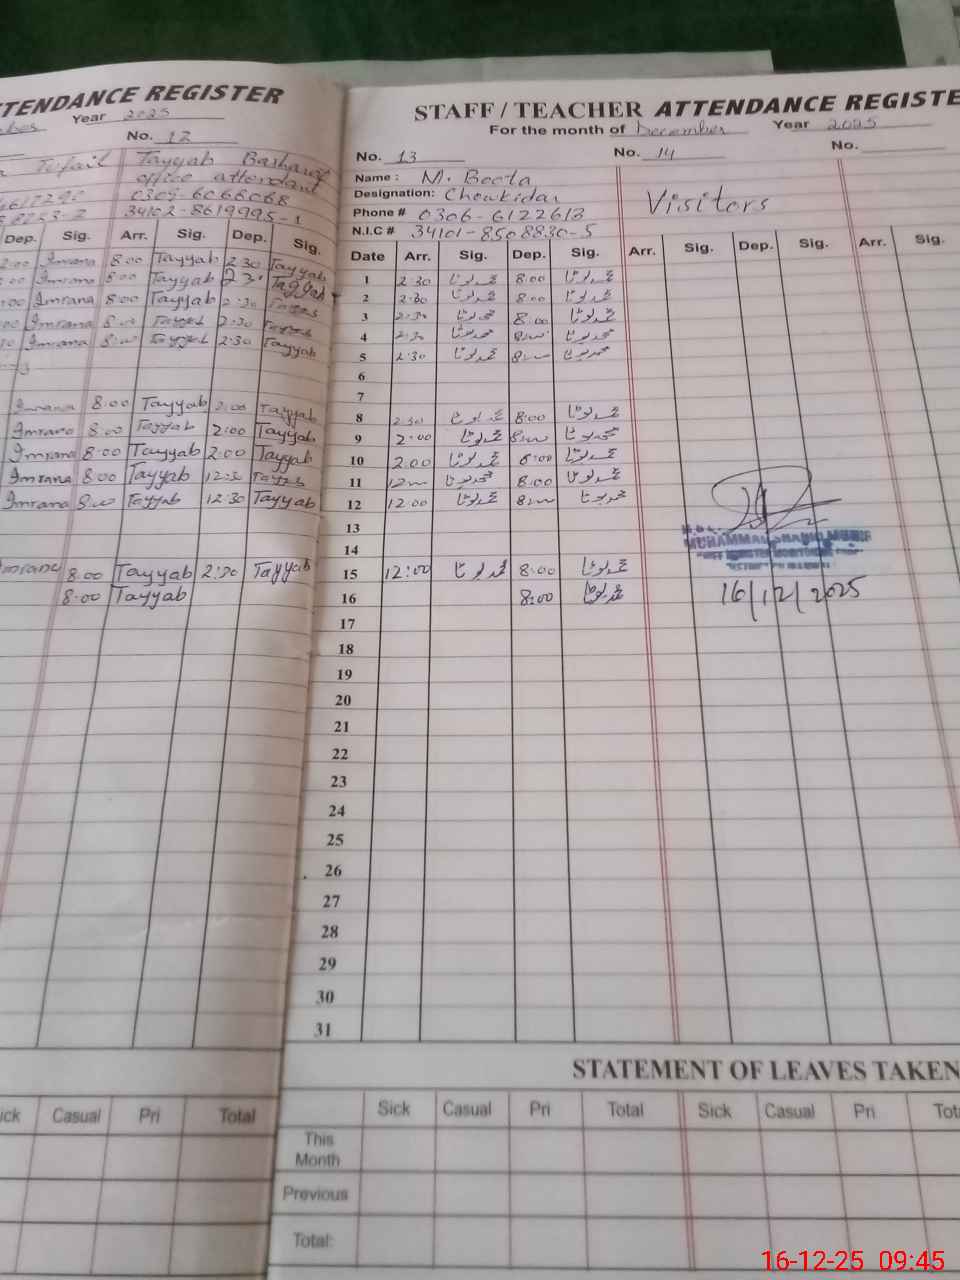 ATTENDANCE REGISTER
Year 2025
No. 12
Tufail Tayyab Basharat
office attendant
0309-6066068
34102-8619995-1
Dep. Sig. Arr. Sig. Dep. Sig.
2:00 Imrana 8:00 Tayyab 2:30 Tayyab
Imrana 8:00 Tayyab 2:30 Tayyab
Imrana 8:00 Tayyab 2:30 Tayyab
Imrana 8:00 Tayyab 2:30 Tayyab
Imrana 8:00 Tayyab 2:30 Tayyab
Imrana 8:00 Tayyab 2:00 Tayyab
Imrana 8:00 Tayyab 2:00 Tayyab
Imrana 8:00 Tayyab 2:00 Tayyab
Imrana 8:00 Tayyab 12:30 Tayyab
Imrana 8:00 Tayyab 12:30 Tayyab
Imrana 8:00 Tayyab 2:30 Tayyab
8:00 Tayyab
Sick Casual Pri Total
STAFF / TEACHER ATTENDANCE REGISTE
For the month of December Year 2025
No. 13 No. 14 No.
Name: M. Boota
Designation: Chowkidar
Phone # 0306-6122613
N.I.C # 34101-8508830-5
Visitors
Date Arr. Sig. Dep. Sig. Arr. Sig. Dep. Sig. Arr. Sig.
1 2:30 محمد بوٹا 8:00 محمد بوٹا
2 2:30 محمد بوٹا 8:00 محمد بوٹا
3 2:30 محمد بوٹا 8:00 محمد بوٹا
4 2:30 محمد بوٹا 8:00 محمد بوٹا
5 2:30 محمد بوٹا 8:00 محمد بوٹا
6
7
8 2:30 محمد بوٹا 8:00 محمد بوٹا
9 2:00 محمد بوٹا 8:00 محمد بوٹا
10 2:00 محمد بوٹا 8:00 محمد بوٹا
11 12:00 محمد بوٹا 8:00 محمد بوٹا
12 12:00 محمد بوٹا 8:00 محمد بوٹا
13
14
15 12:00 محمد بوٹا 8:00 محمد بوٹا
16 8:00 محمد بوٹا
MUHAMMAD
16/12/2025
17
18
19
20
21
22
23
24
25
26
27
28
29
30
31
STATEMENT OF LEAVES TAKEN
Sick Casual Pri Total Sick Casual Pri Tot
This Month
Previous
Total:
16-12-25 09:45